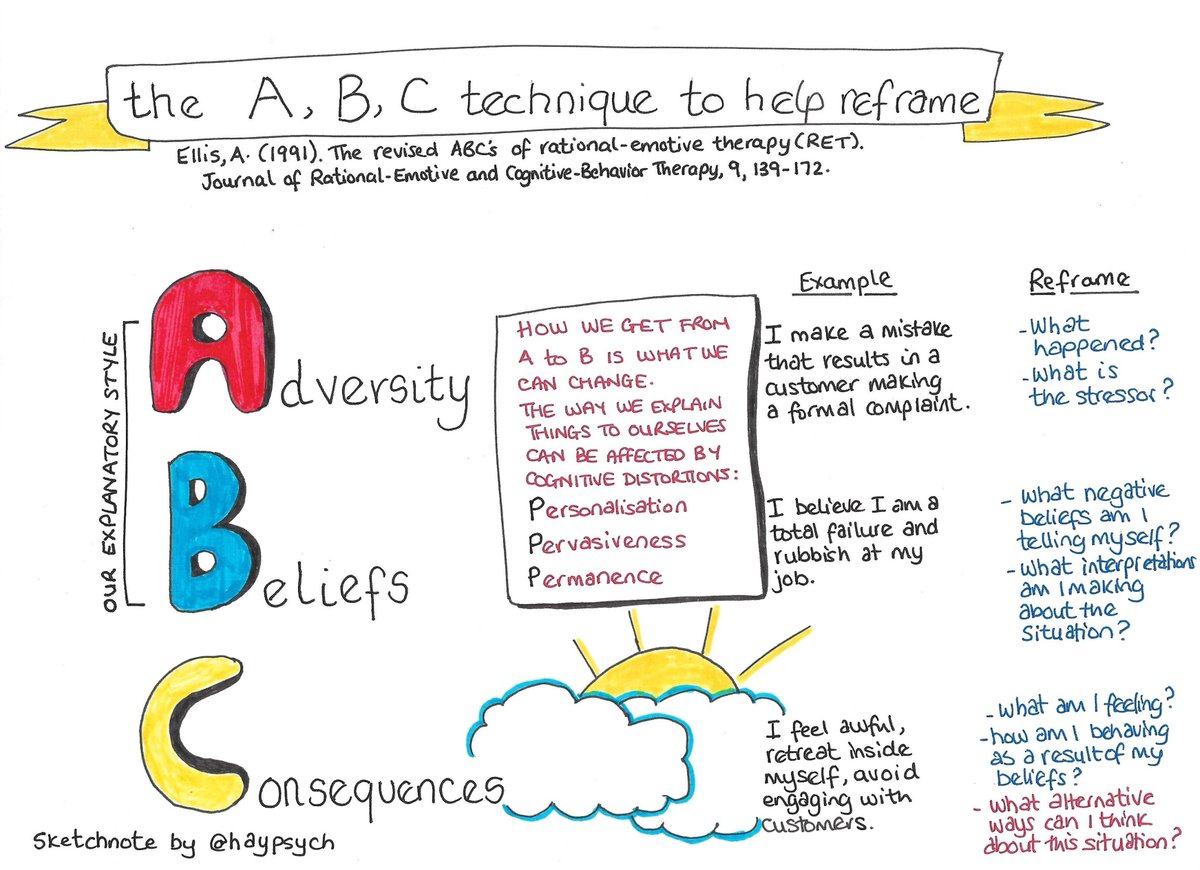 the A, B, C technique to help reframe
Ellis, A. (1991). The revised ABC's of rational-emotive therapy (RET).
Journal of Rational-Emotive and Cognitive-Behavior Therapy, 9, 139-172.
OUR EXPLANATORY STYLE
Adversity
Beliefs
Consequences
HOW WE GET FROM
A to B IS WHAT WE
CAN CHANGE.
THE WAY WE EXPLAIN
THINGS TO OURSELVES
CAN BE AFFECTED BY
COGNITIVE DISTORTIONS:
Personalisation
Pervasiveness
Permanence
Example
I make a mistake
that results in a
customer making
a formal complaint.
I believe I am a
total failure and
rubbish at my
job.
I feel awful,
retreat inside
myself, avoid
engaging with
customers.
Reframe
- What
happened?
- What is
the stressor?
- what negative
beliefs am I
telling myself?
- what interpretations
am I making
about the
situation?
- what am I feeling?
- how am I behaving
as a result of my
beliefs?
- what alternative
ways can I think
about this situation?
Sketchnote by @haypsych